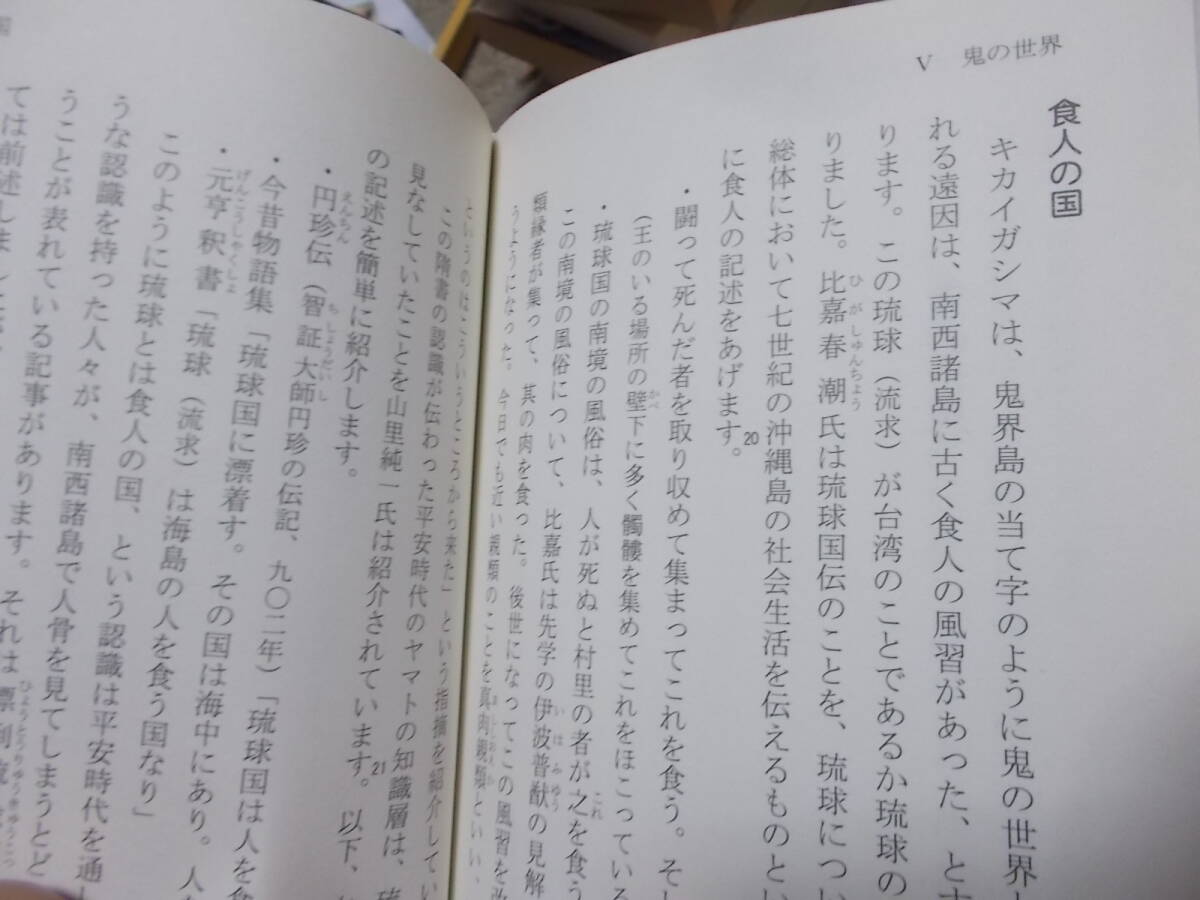 V 鬼の世界
食人の国
キカイガシマは、鬼界島の当て字のように鬼の世界
れる遠因は、南西諸島に古く食人の風習があった、とす
ります。この琉球（流求）が台湾のことであるか琉球の
りました。比嘉春潮氏は琉球国伝のことを、琉球につい
総体において七世紀の沖縄島の社会生活を伝えるものとい
に食人の記述をあげます。20
・闘って死んだ者を取り収めて集まってこれを食う。そし
（王のいる場所の壁下に多く髑髏を集めてこれをほこっている
・琉球国の南境の風俗は、人が死ぬと村里の者が之を食う
この南境の風俗について、比嘉氏は先学の伊波普猷の見解
類縁者が集って、其の肉を食った。後世になってこの風習を改
うようになった。今日でも近い親類のことを真肉親類といい、
というのはこういうところから来た」という指摘を紹介してい
この隋書の認識が伝わった平安時代のヤマトの知識層は、琉
見なしていたことを山里純一氏は紹介されています。21以下、
の記述を簡単に紹介します。
・円珍伝（智証大師円珍の伝記、九〇二年）「琉球国は人を食
・今昔物語集「琉球国に漂着す。その国は海中にあり。人
・元亨釈書「琉球（流求）は海島の人を食う国なり」
このように琉球とは食人の国、という認識は平安時代を通し
うな認識を持った人々が、南西諸島で人骨を見てしまうとど
うことが表れている記事があります。それは漂到流
ては前述しました